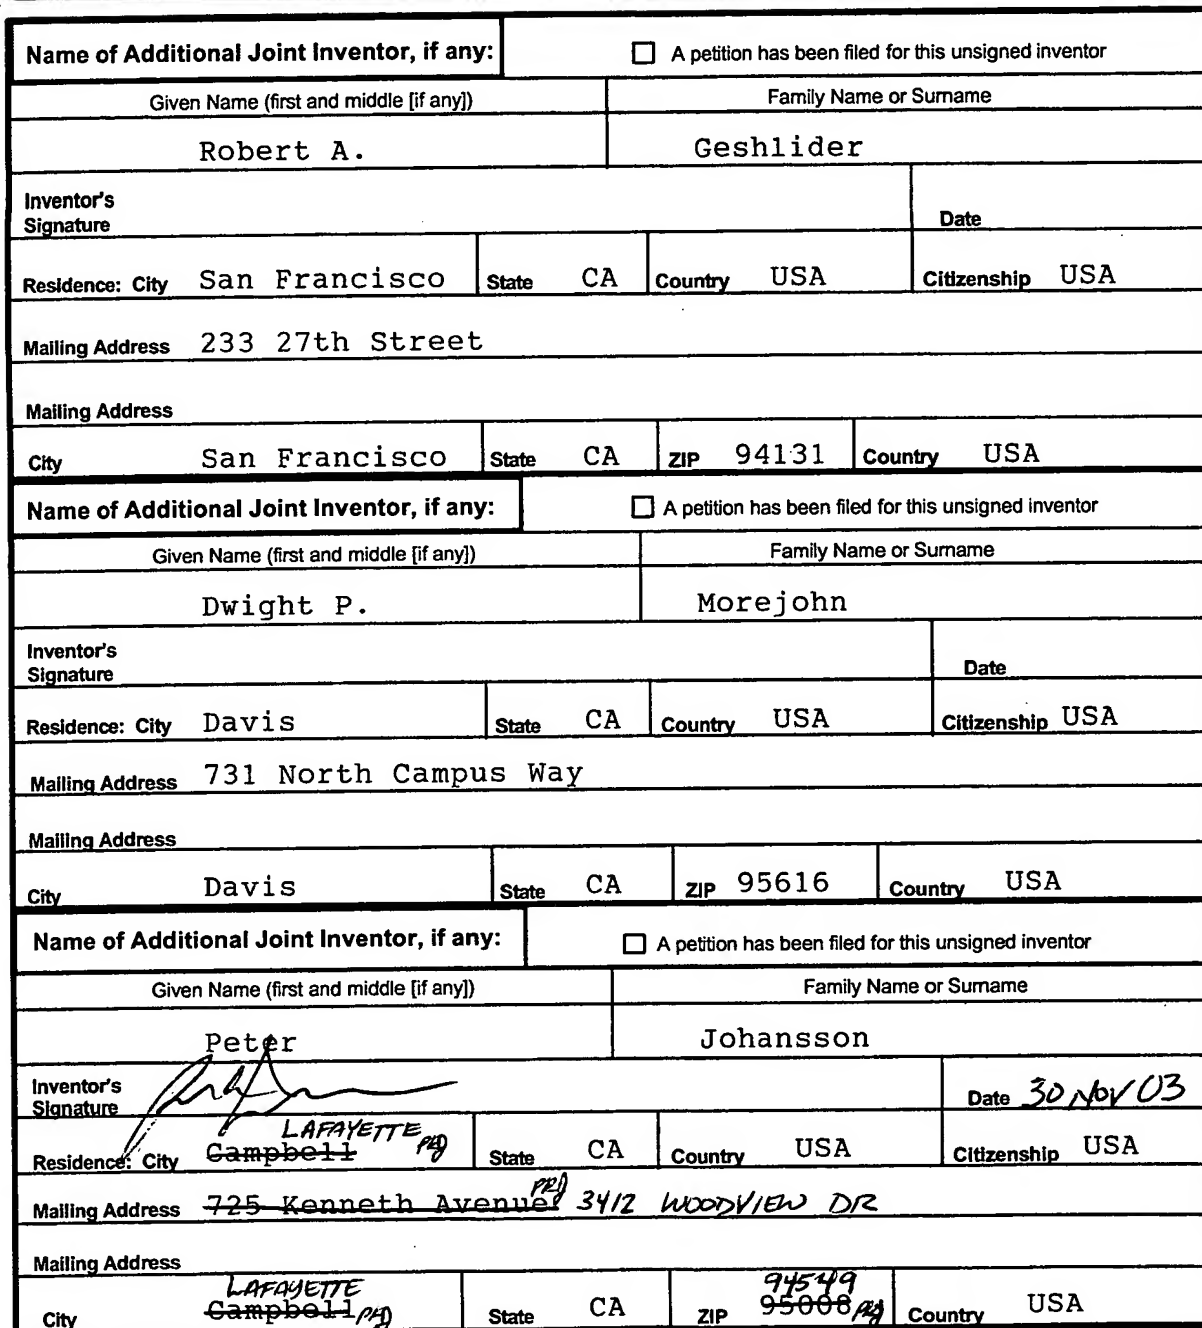 Name of Additional Joint Inventor, if any: A petition has been filed for this unsigned inventor
Given Name (first and middle [if any]) Family Name or Surname
Robert A. Geshlider
Inventor's
Signature Date
Residence: City San Francisco State CA Country USA Citizenship USA
Mailing Address 233 27th Street
Mailing Address
City San Francisco State CA ZIP 94131 Country USA
Name of Additional Joint Inventor, if any: A petition has been filed for this unsigned inventor
Given Name (first and middle [if any]) Family Name or Surname
Dwight P. Morejohn
Inventor's
Signature Date
Residence: City Davis State CA Country USA Citizenship USA
Mailing Address 731 North Campus Way
Mailing Address
City Davis State CA ZIP 95616 Country USA
Name of Additional Joint Inventor, if any: A petition has been filed for this unsigned inventor
Given Name (first and middle [if any]) Family Name or Surname
Peter Johansson
Inventor's
Signature Date 30 NOV 03
LAFAYETTE
Residence: City Campbell PRJ State CA Country USA Citizenship USA
Mailing Address 725 Kenneth Avenue PRJ 3412 WOODVIEW DR
Mailing Address
LAFAYETTE 94549
City Campbell PRJ State CA ZIP 95008 PRJ Country USA